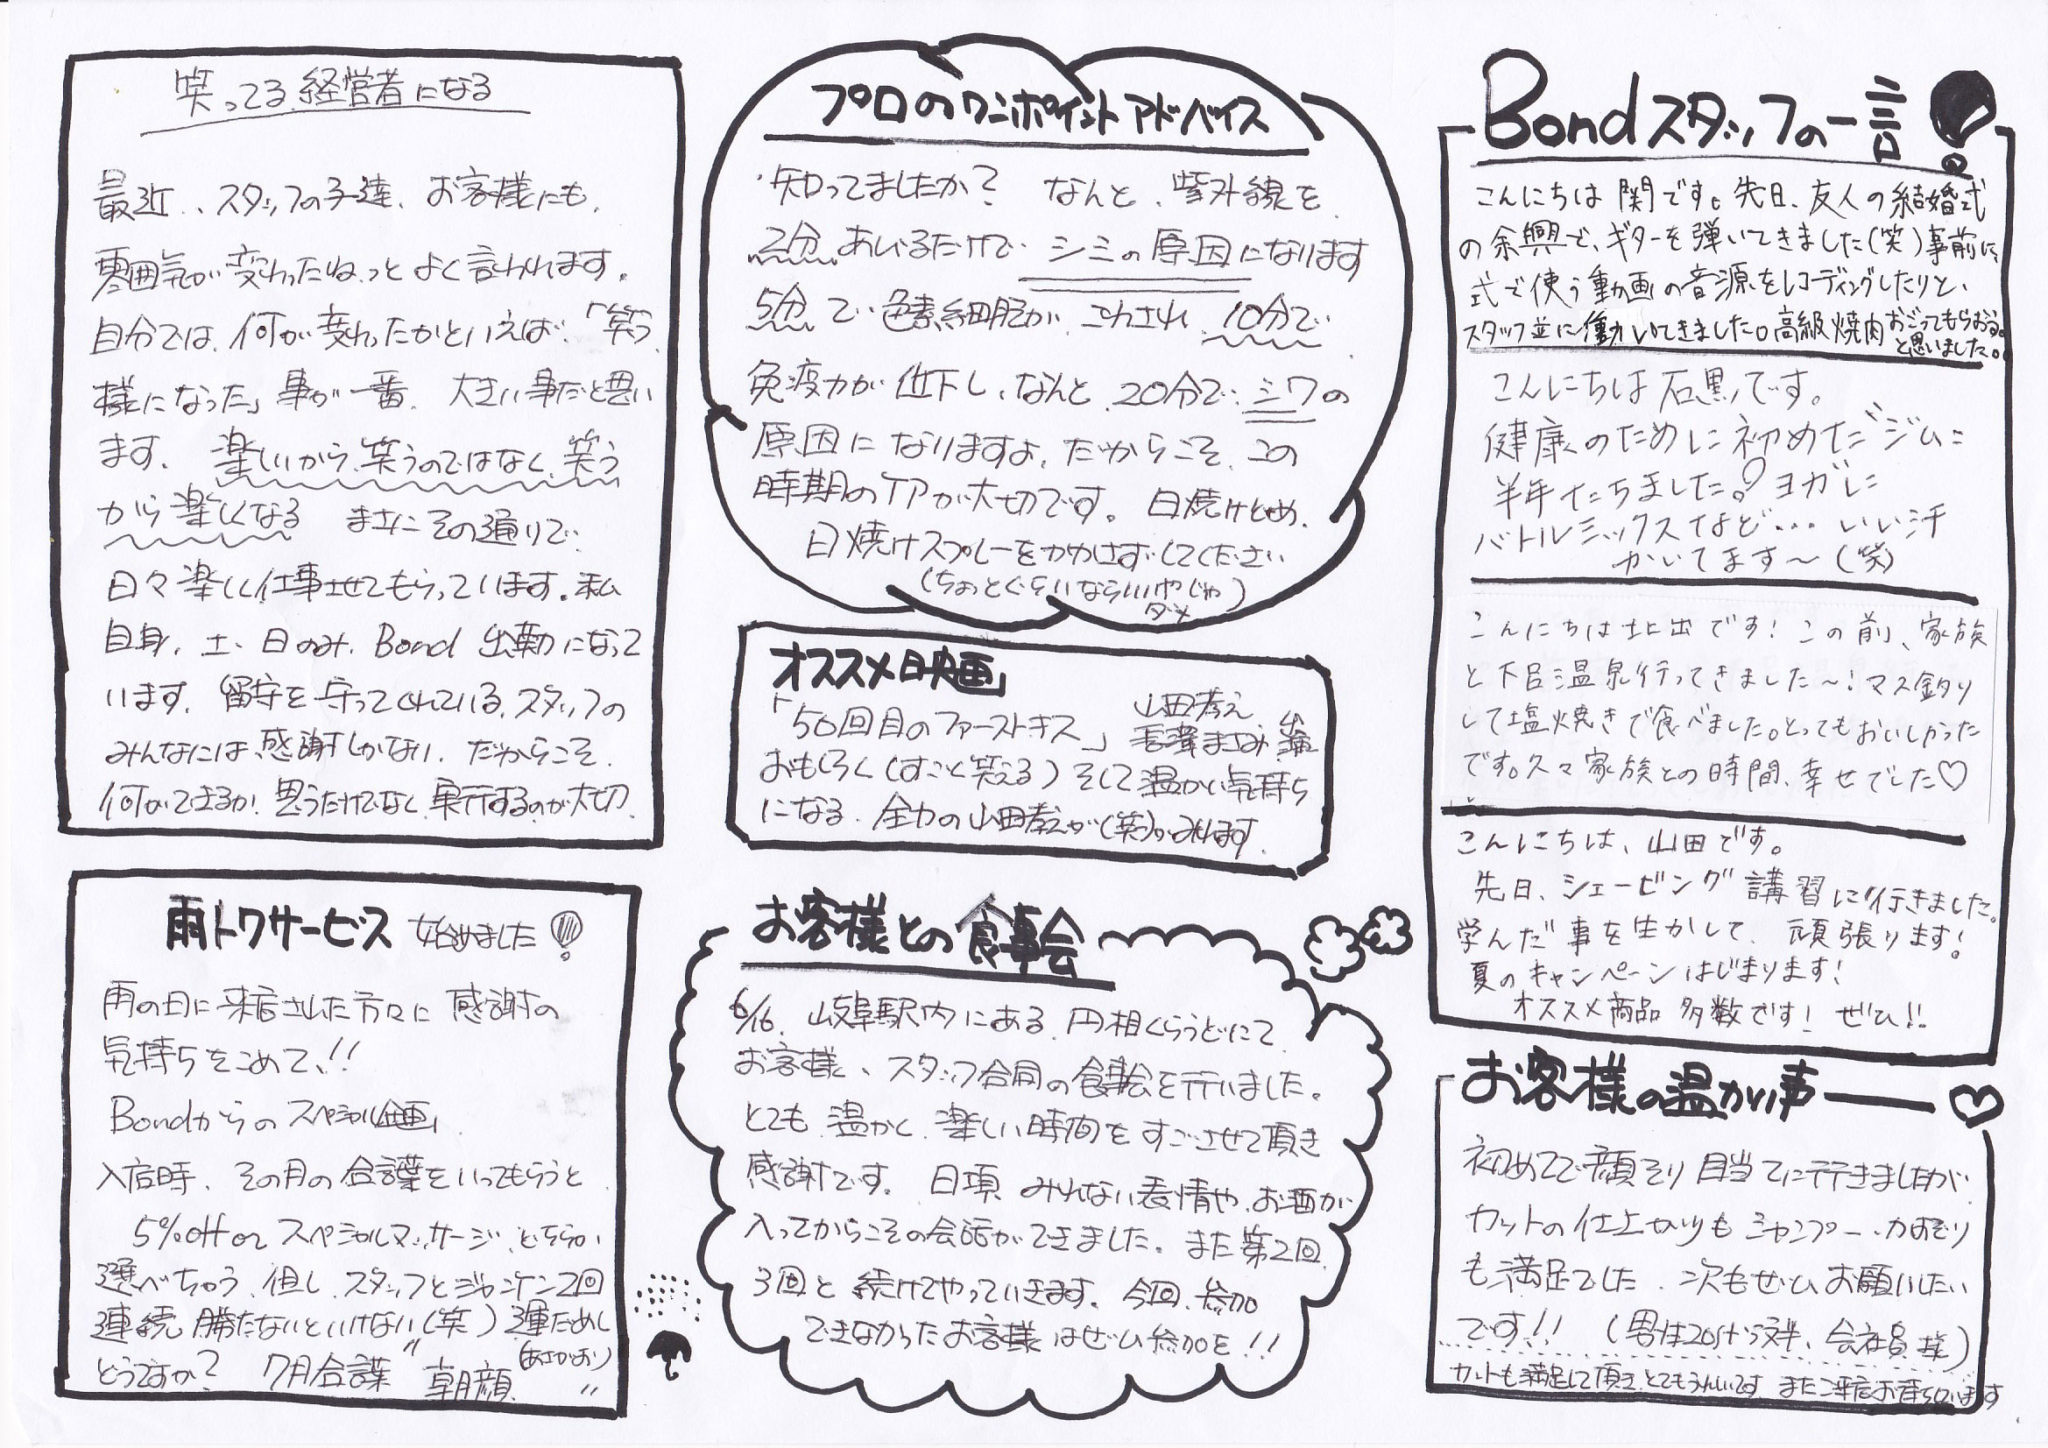 笑ってる経営者になる
最近、スタッフの子達、お客様にも、
雰囲気が変わったねっとよく言われます。
自分では、何が変わったかといえば、「笑う
様になった」事が一番、大きい事だと思い
ます。楽しいから、笑うのではなく、笑う
から楽しくなる まさにその通りで、
日々楽しく仕事させてもらっています。私
自身、土、日のみ、Bond 出勤になって
います。留守を守ってくれている、スタッフの
みんなには、感謝しかない。だからこそ、
何ができるか!思うだけでなく、実行するのが大切
雨トワサービス 始めました!
雨の日に来店された方々に感謝の
気持ちをこめて、!!
Bondからのスペシャル企画
入店時、その月の合言葉をいってもらうと
5%off or スペシャルマッサージ、どちらか
選べちゃう、但し、スタッフとジャンケン2回
連続勝たないといけない(笑) 運だめし
どうですか? 7月合言葉 "朝顔"
(あさがお)
プロのワンポイントアドバイス
知ってましたか? なんと、紫外線を
2分、あびるだけで シミの原因になります
5分で、色素細胞が、こわされ、10分で
免疫力が低下し、なんと、20分で、シワの
原因になりますよ。だからこそ、この
時期のケアが大切です。日焼けどめ、
日焼けスプレーをかかさずしてください
(ちょっとぐらいならいいやじゃ
ダメ)
オススメ映画
「50回目のファーストキス」 山田孝之
長澤まさみ 出演
おもしろく(すごく笑える) そして温かい気持ち
になる。全力の山田孝之が(笑)がみれます。
お客様との食事会
6/16、岐阜駅内にある、円相くらうどにて、
お客様、スタッフ合同の食事会を行いました。
とても、温かく、楽しい時間をすごさせて頂き
感謝です。日頃、みれない表情や、お酒が
入ってからこその会話ができました。また第2回、
3回と続けてやっていきます。今回、参加
できなかったお客様はぜひ参加を!!
Bondスタッフの一言!
こんにちは 関です。先日、友人の結婚式
の余興で、ギターを弾いてきました(笑)事前に、
式で使う動画の音源をレコーディングしたりと、
スタッフ並に働いてきました。高級焼肉おごってもらおうと
思いました。
こんにちは石黒です。
健康のために初めたジムに
半年たちました!ヨガに
バトルミックスなど… いい汗
かいてます〜(笑)
こんにちは北出です!この前、家族
と下呂温泉行ってきました〜!マス釣り
して塩焼きで食べました。とってもおいしかった
です。久々家族との時間、幸せでした♡
こんにちは、山田です。
先日、シェービング講習に行きました。
学んだ事を生かして、頑張ります!
夏のキャンペーンはじまります!
オススメ商品 多数です! ぜひ!!
お客様の温かい声 ♡
初めてで顔そり目当てに行きましたが、
カットの仕上がりもシャンプー、カオそり
も満足でした。次もぜひお願いしたい
です!! (男性20代から前半、会社員様)
カットも満足して頂き、とてもうれしいです またご来店お待ちしています